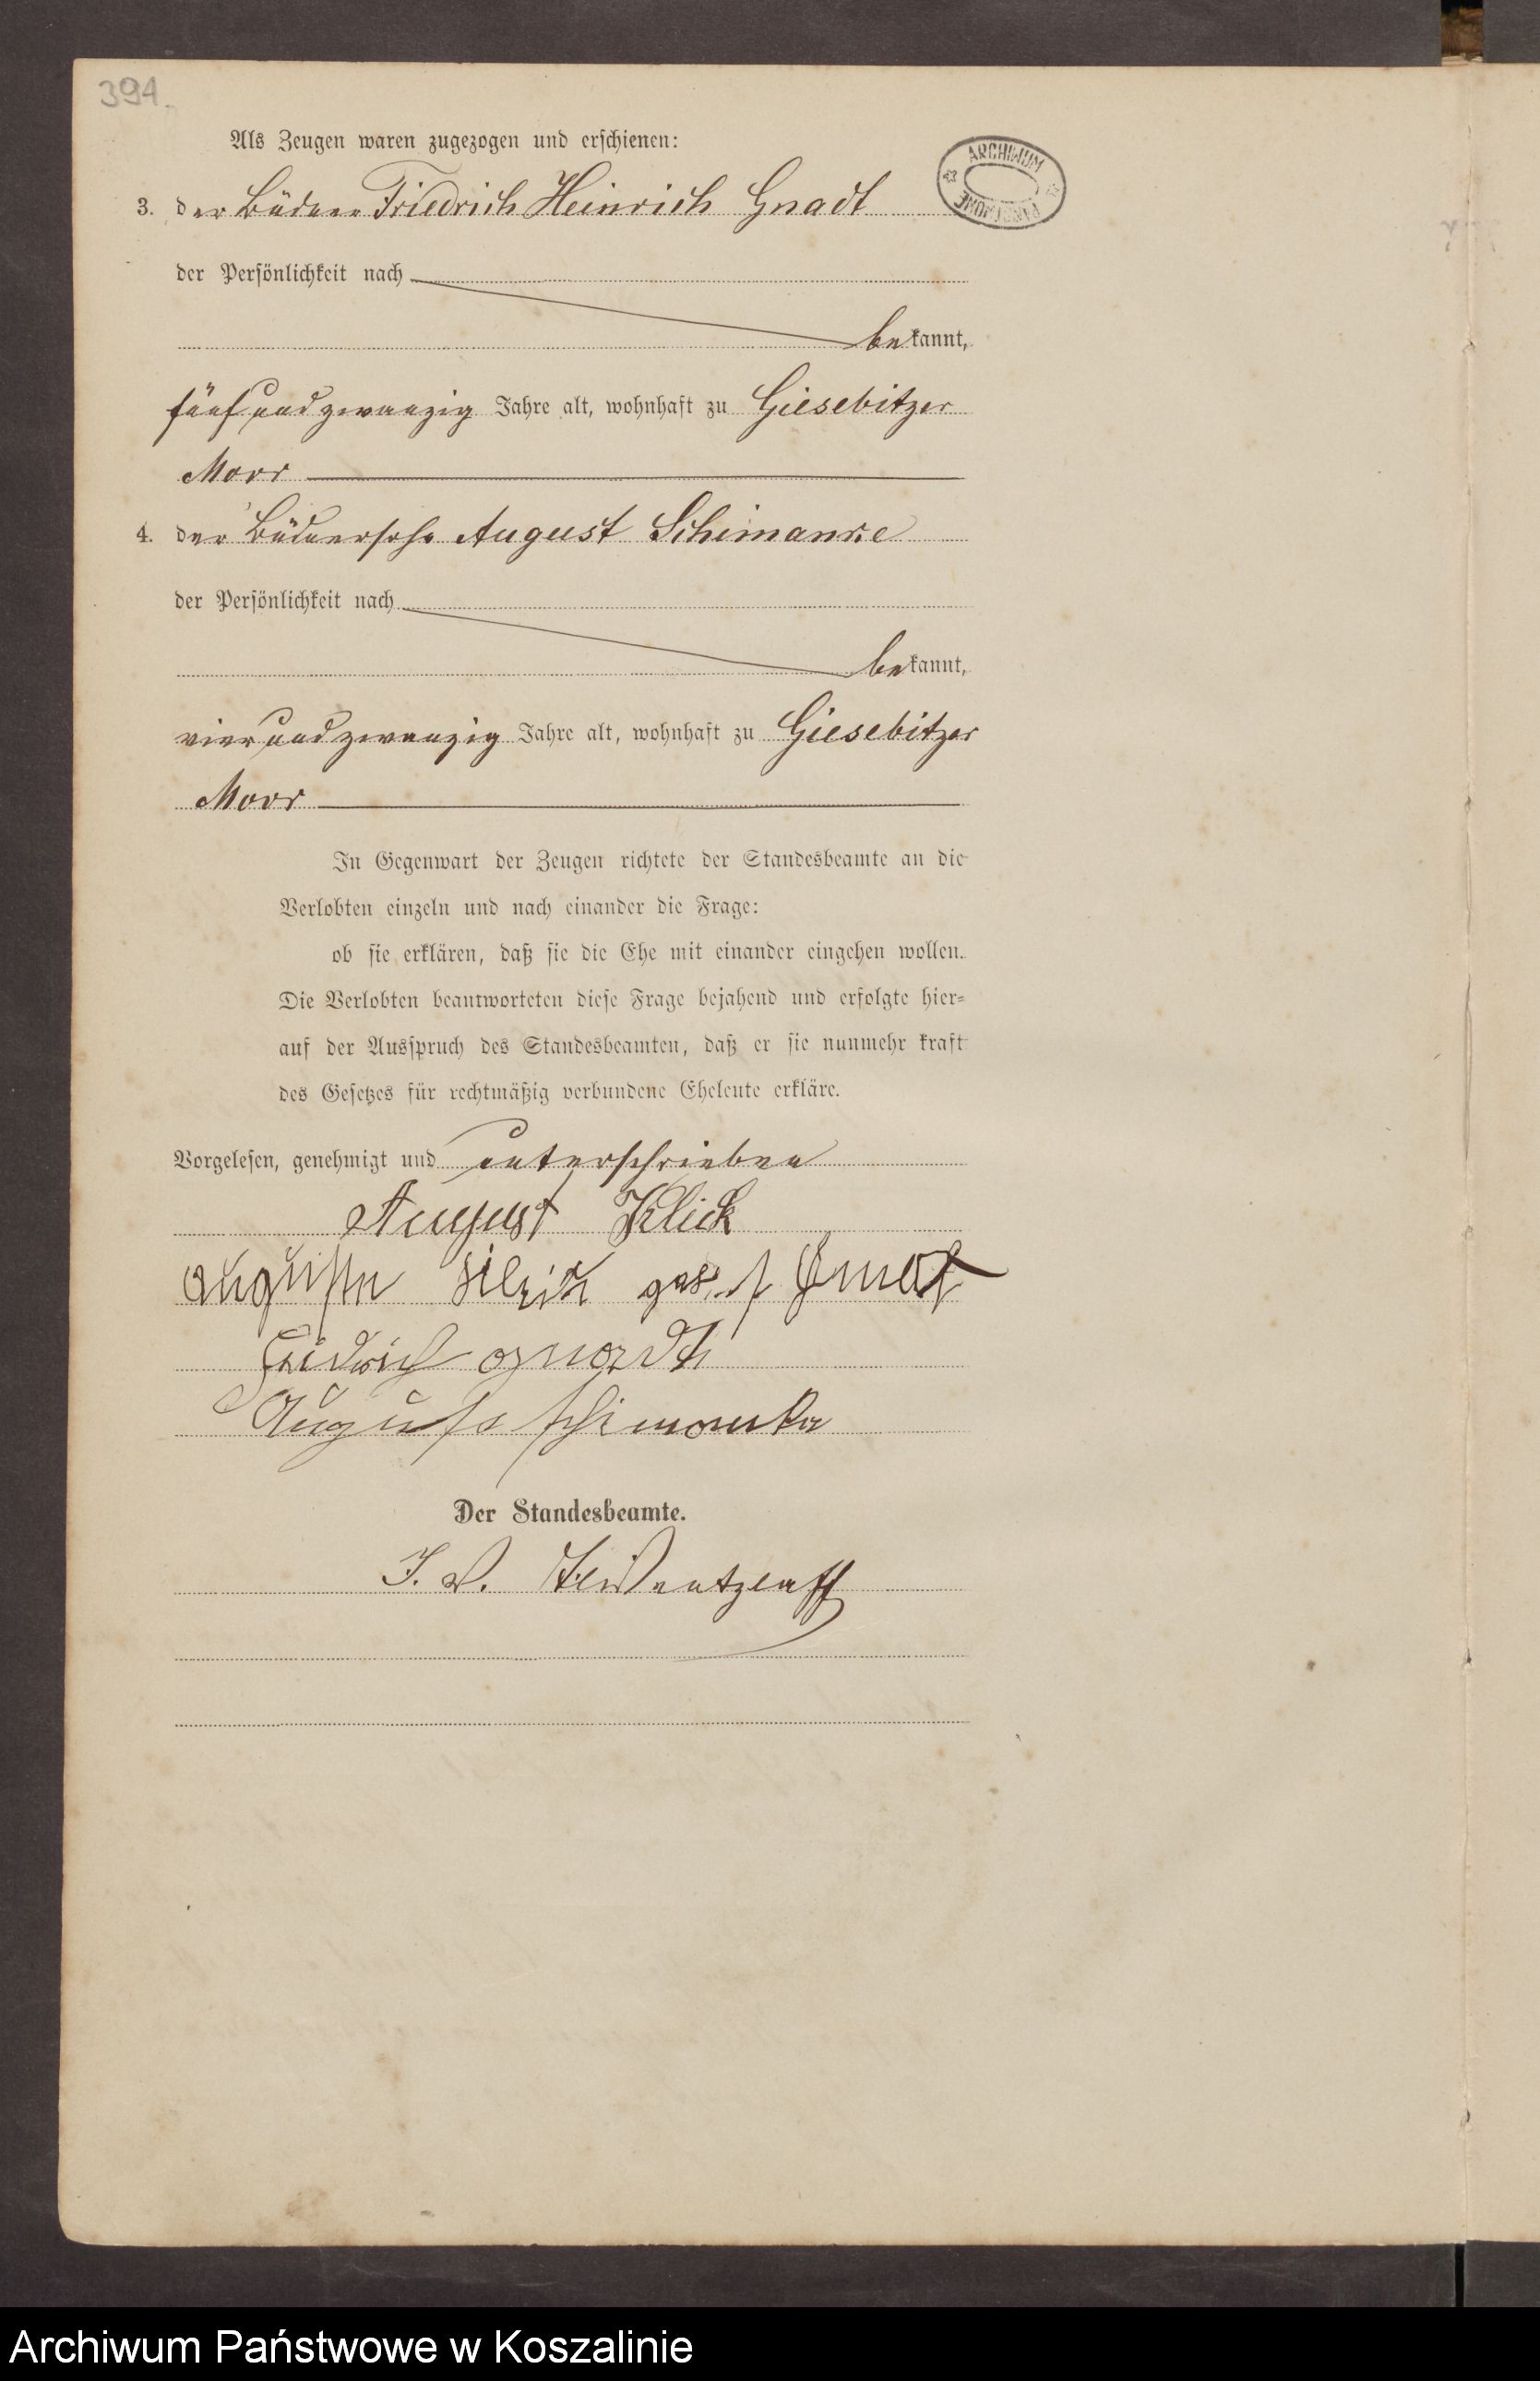 394.
Als Zeugen waren zugezogen und erschienen:
ARCHIWUM PAŃSTWOWE
3. der Büdner Friedrich Heinrich Gnadt
der Persönlichkeit nach
bekannt,
fünfundzwanzig Jahre alt, wohnhaft zu Giesebitzer
Moor
4. der Büdnersohn August Schimanke
der Persönlichkeit nach
bekannt,
vierundzwanzig Jahre alt, wohnhaft zu Giesebitzer
Moor
In Gegenwart der Zeugen richtete der Standesbeamte an die
Verlobten einzeln und nach einander die Frage:
ob sie erklären, daß sie die Ehe mit einander eingehen wollen.
Die Verlobten beantworteten diese Frage bejahend und erfolgte hier-
auf der Ausspruch des Standesbeamten, daß er sie nunmehr kraft
des Gesetzes für rechtmäßig verbundene Eheleute erkläre.
Vorgelesen, genehmigt und unterschrieben
August Klick
Auguste Klick
Friedrich
August Schimanke
Der Standesbeamte.
I. V.
Archiwum Państwowe w Koszalinie